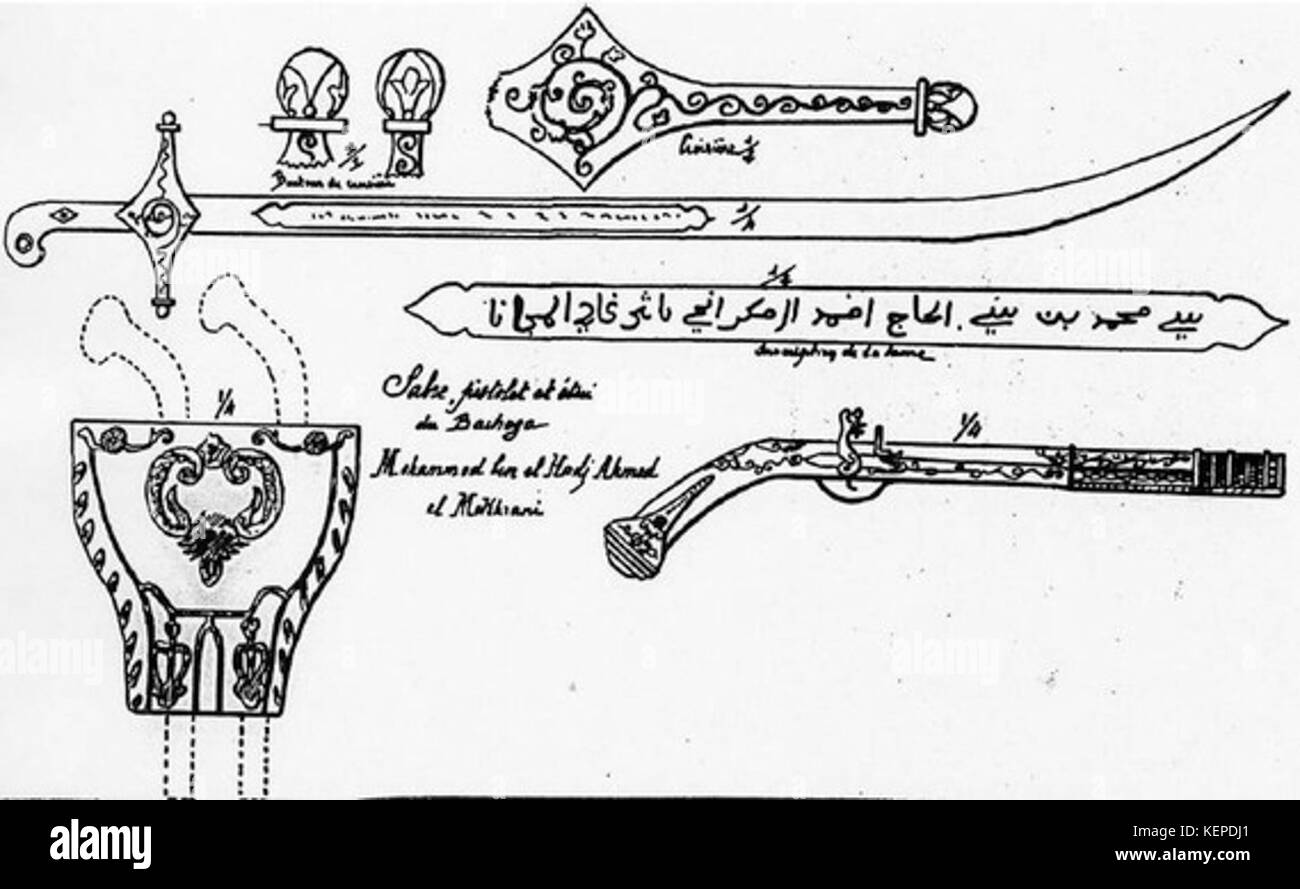 Bouton de croisière
2/1
Croisière 1/2
1/4
1/2
سي محمد بن سيني الحاج احمد المكراني باشر غاي
Inscription de la lame
1/4
Sabre, pistolet et étui
du Bachaga
Mohammed ben el Hadj Ahmed
el Mokhrani
1/4
alamy
Image ID: KEPDJ1
www.alamy.com